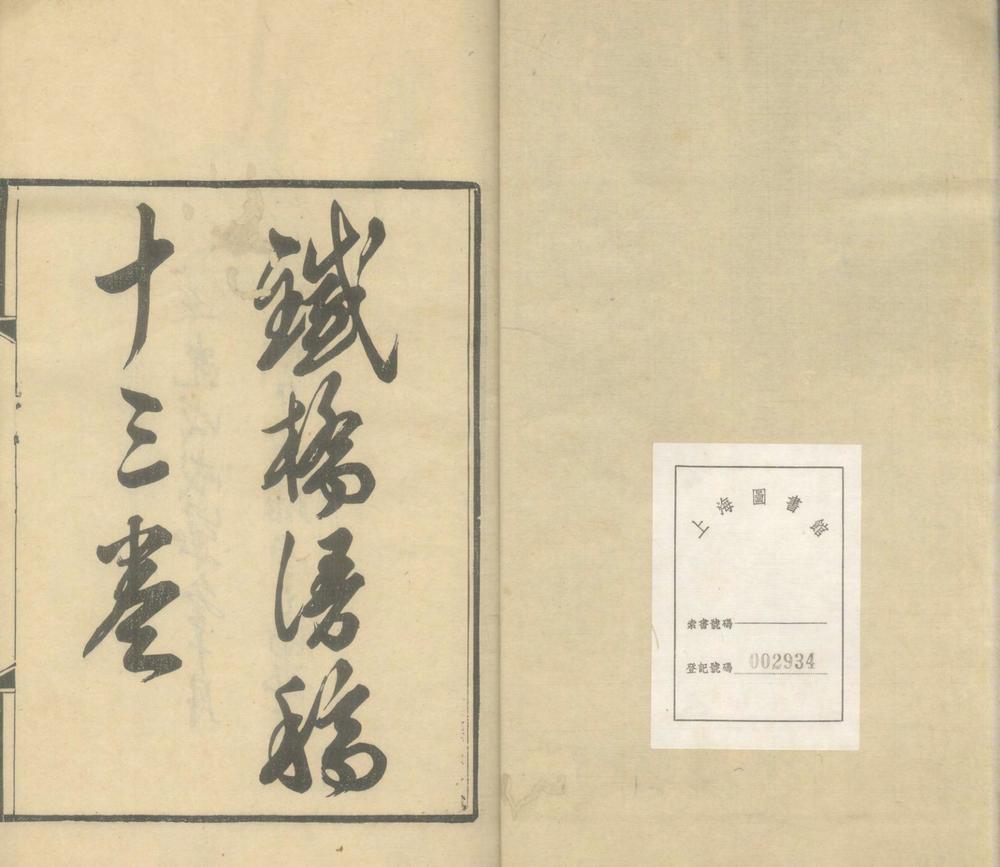 上海圖書館
索書號碼
登記號碼 002934
鐵橋漫稿
十三卷